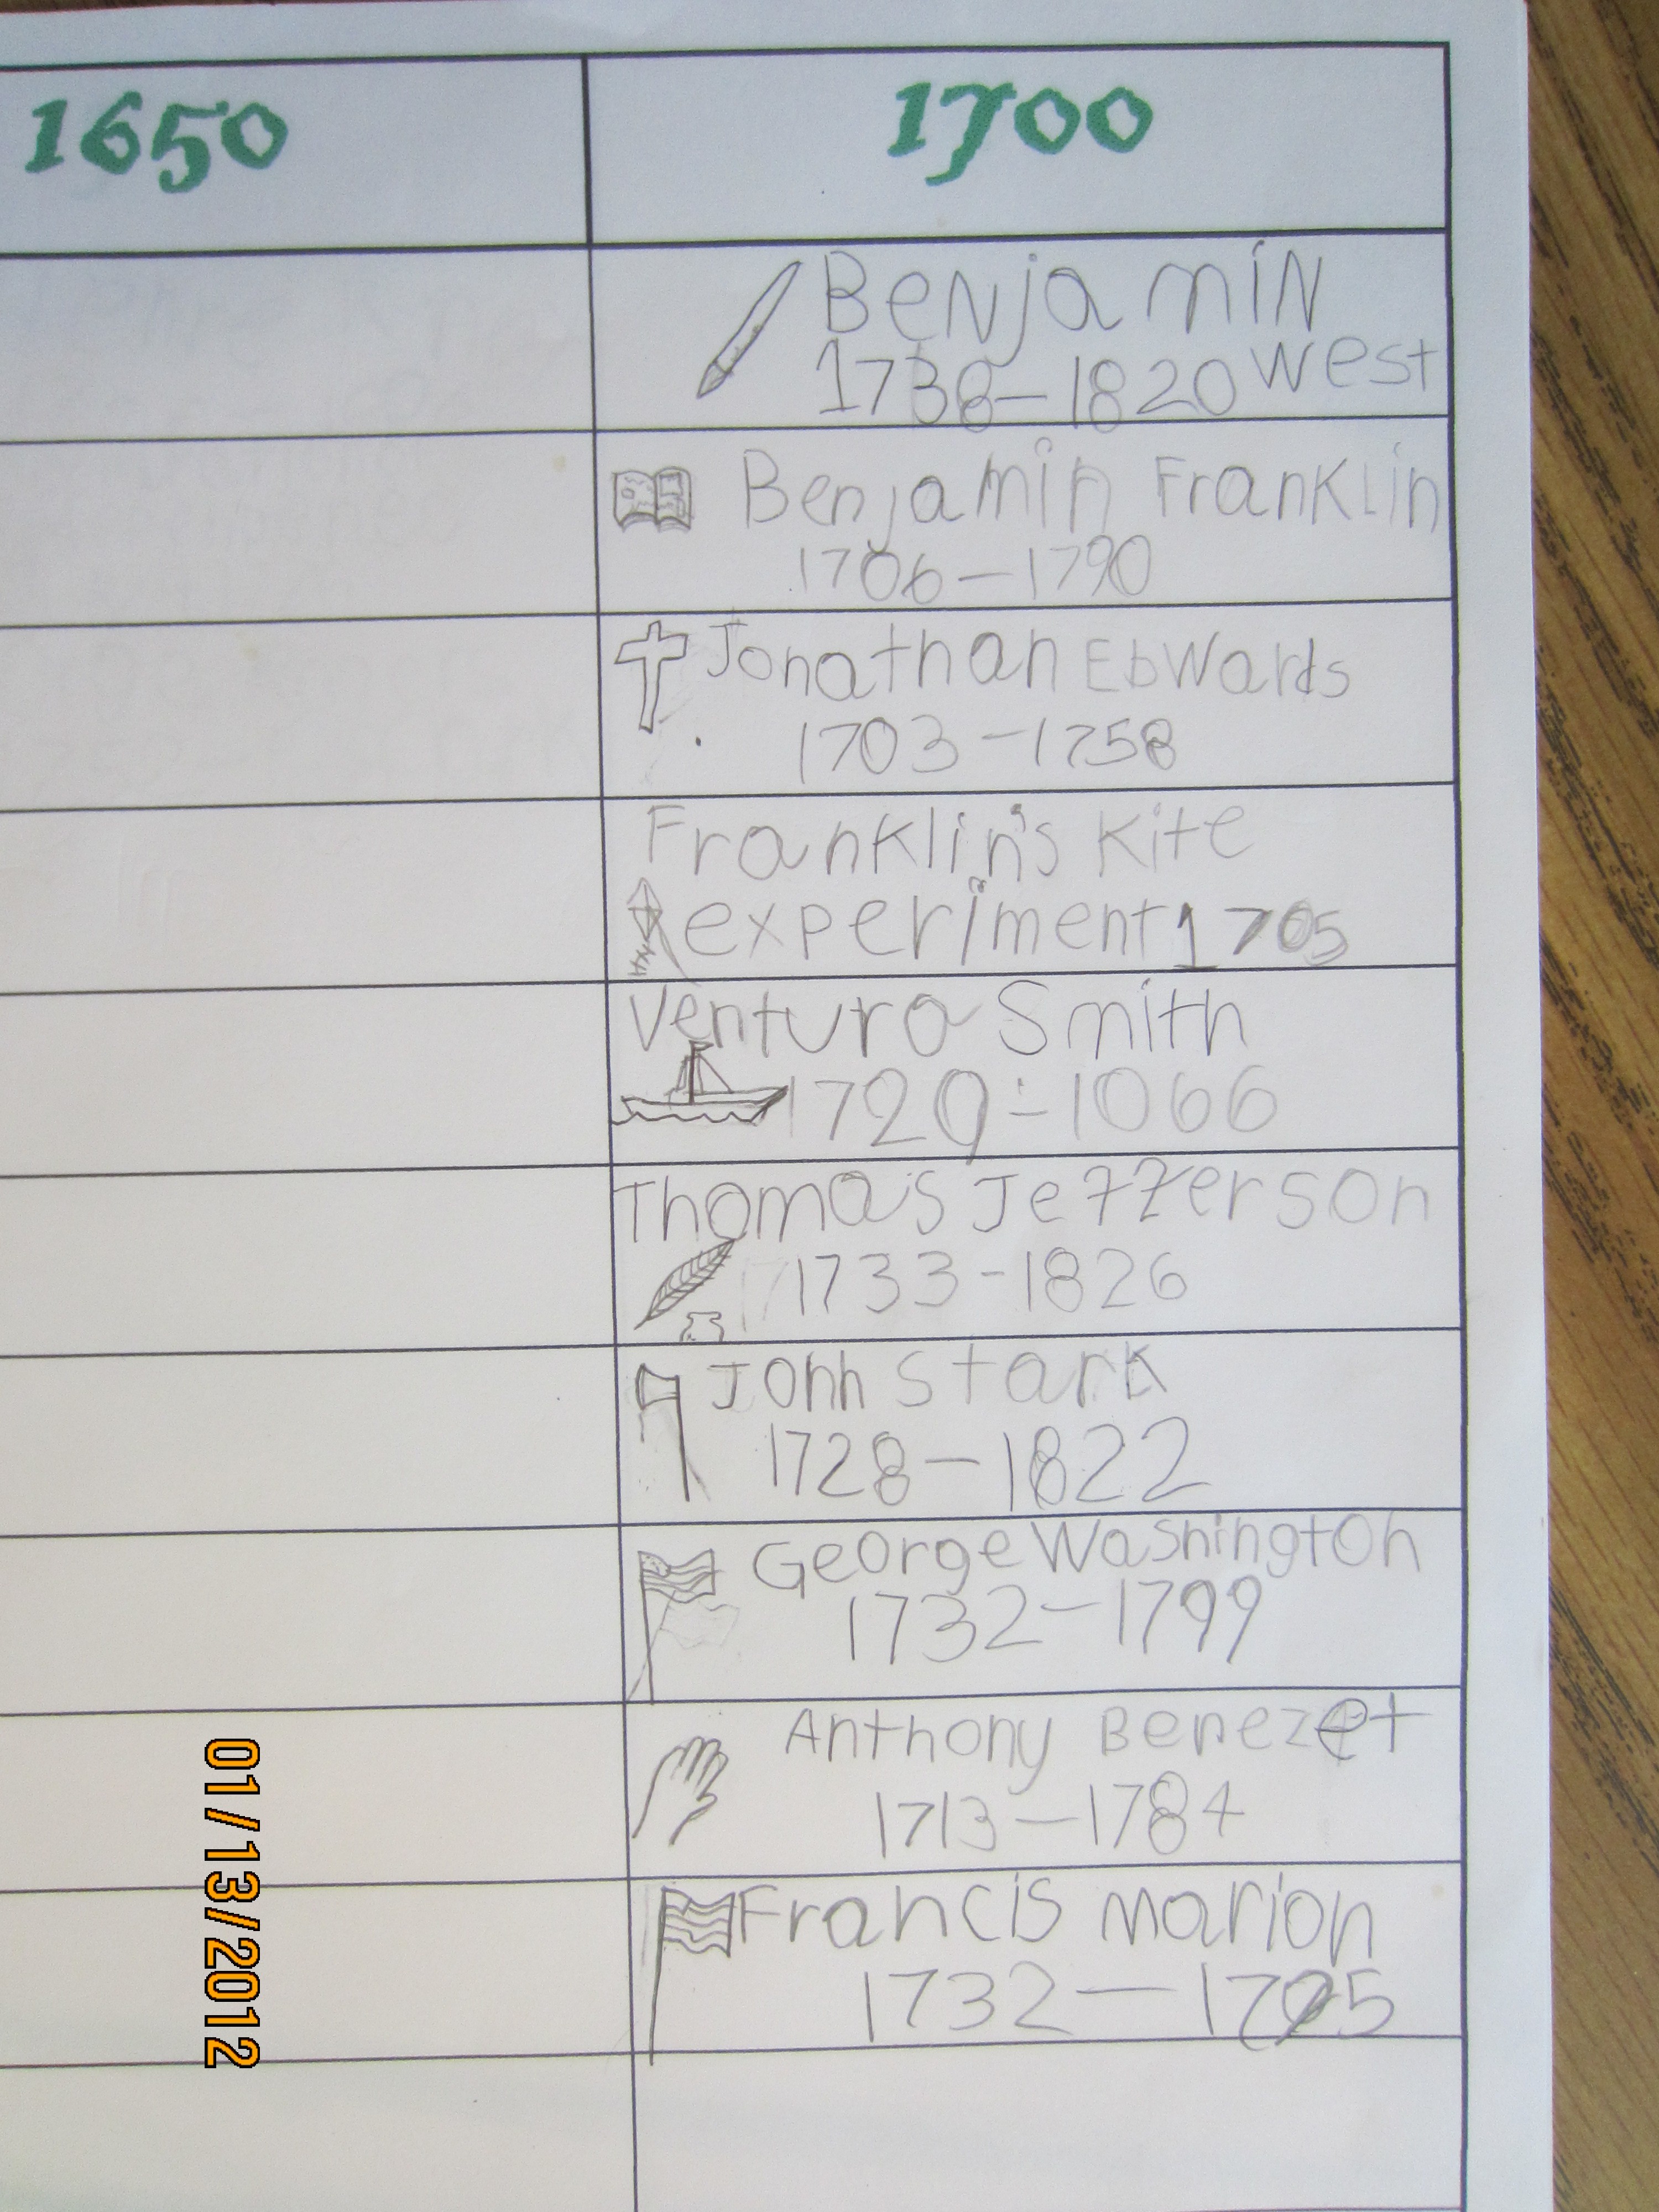 1650
1700
Benjamin
1738-1820 West
Benjamin Franklin
1706-1790
Jonathan Ebwards
1703-1758
Franklin's Kite
experiment 1705
Ventura Smith
1729-1066
Thomas Jefferson
1733-1826
John Stark
1728-1822
George Washington
1732-1799
Anthony Benezet
1713-1784
Francis Marion
1732-1795
01/13/2012